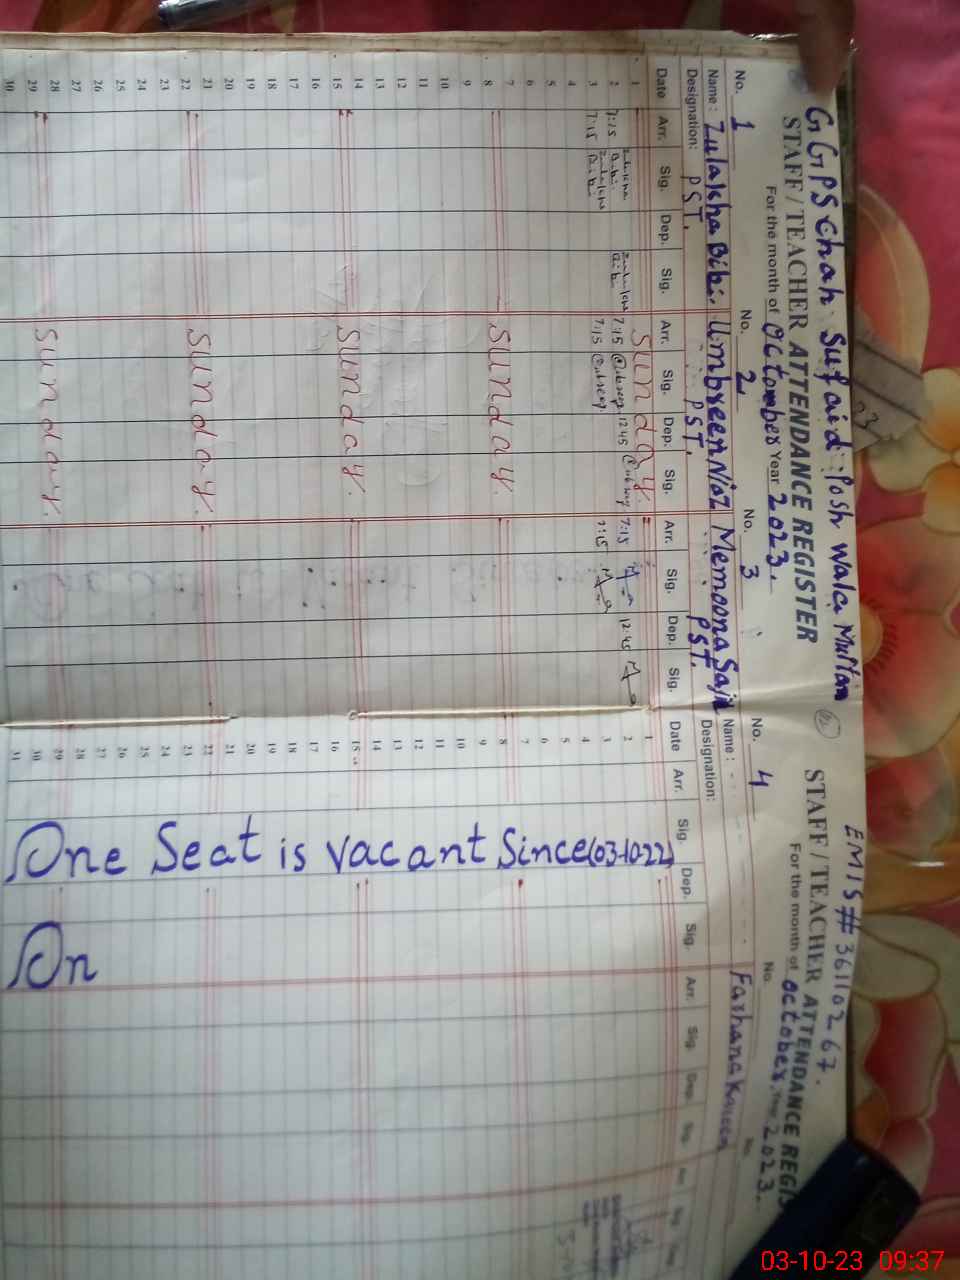 GGPS Chah Sufaid Posh Wala Multan
STAFF / TEACHER ATTENDANCE REGISTER
For the month of Octomber Year 2023.
No. 1 No. 2 No. 3
Name: Zulaikha Bibi. Umbreen Niaz Memoona Sajid
Designation: PST. PST. PST.
Date Arr. Sig. Dep. Sig. Arr. Sig. Dep. Sig. Arr. Sig. Dep. Sig.
1 Sunday.
2 7:15 7:15 12:45 7:15 12:45
3 7:15 7:15 7:15
4
5
6
7
8 Sunday.
9
10
11
12
13
14
15 Sunday.
16
17
18
19
20
21
22 Sunday.
23
24
25
26
27
28
29 Sunday.
30
EMIS # 36110267.
STAFF / TEACHER ATTENDANCE REGIS
For the month of October. Year 2023.
No. 4 No. No.
Name: Farhana
Designation:
Date Arr. Sig. Dep. Sig. Arr. Sig. Dep. Sig. Arr. Sig. Dep.
1
2
3
4
5
6
7
8
9
10
11
12
13
14
15
16
17
18
19
20
21
22
23
24
25
26
27
28
29
30
31
One Seat is vacant Since (03-10-22)
On
03-10-23 09:37